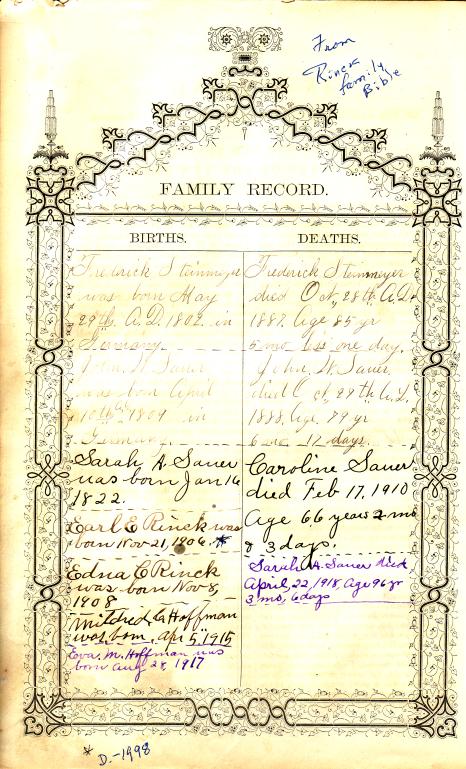 From
Rinck
family
Bible
FAMILY RECORD.
BIRTHS.
Frederick Steinmeyer
was born May
29th A.D. 1802 in
Germany.
John W Sauer
was born April
10th A. 1809 in
Germany
Sarah A. Sauer
was born Jan 16
1822.
Earl E Rinck was
born Nov 21, 1906. *
Edna C Rinck
was born Nov 8,
1908
Mildred G Hoffman
was born Apr 5, 1915
Eva. M. Hoffman was
born Aug 28, 1917
DEATHS.
Frederick Steinmeyer
died Oct, 28th A.D.
1887. Age 85 yr
5 mo less one day.
John W Sauer
died Oct, 27th A.D.
1888, Age. 79 yr
6 mo 17 days.
Caroline Sauer
died Feb 17, 1910
Age 66 years 2 mo
& 3 days.
Sarah A. Sauer died
April, 22, 1918, Age 96 yr
3 mo, 6 days
* D. - 1998